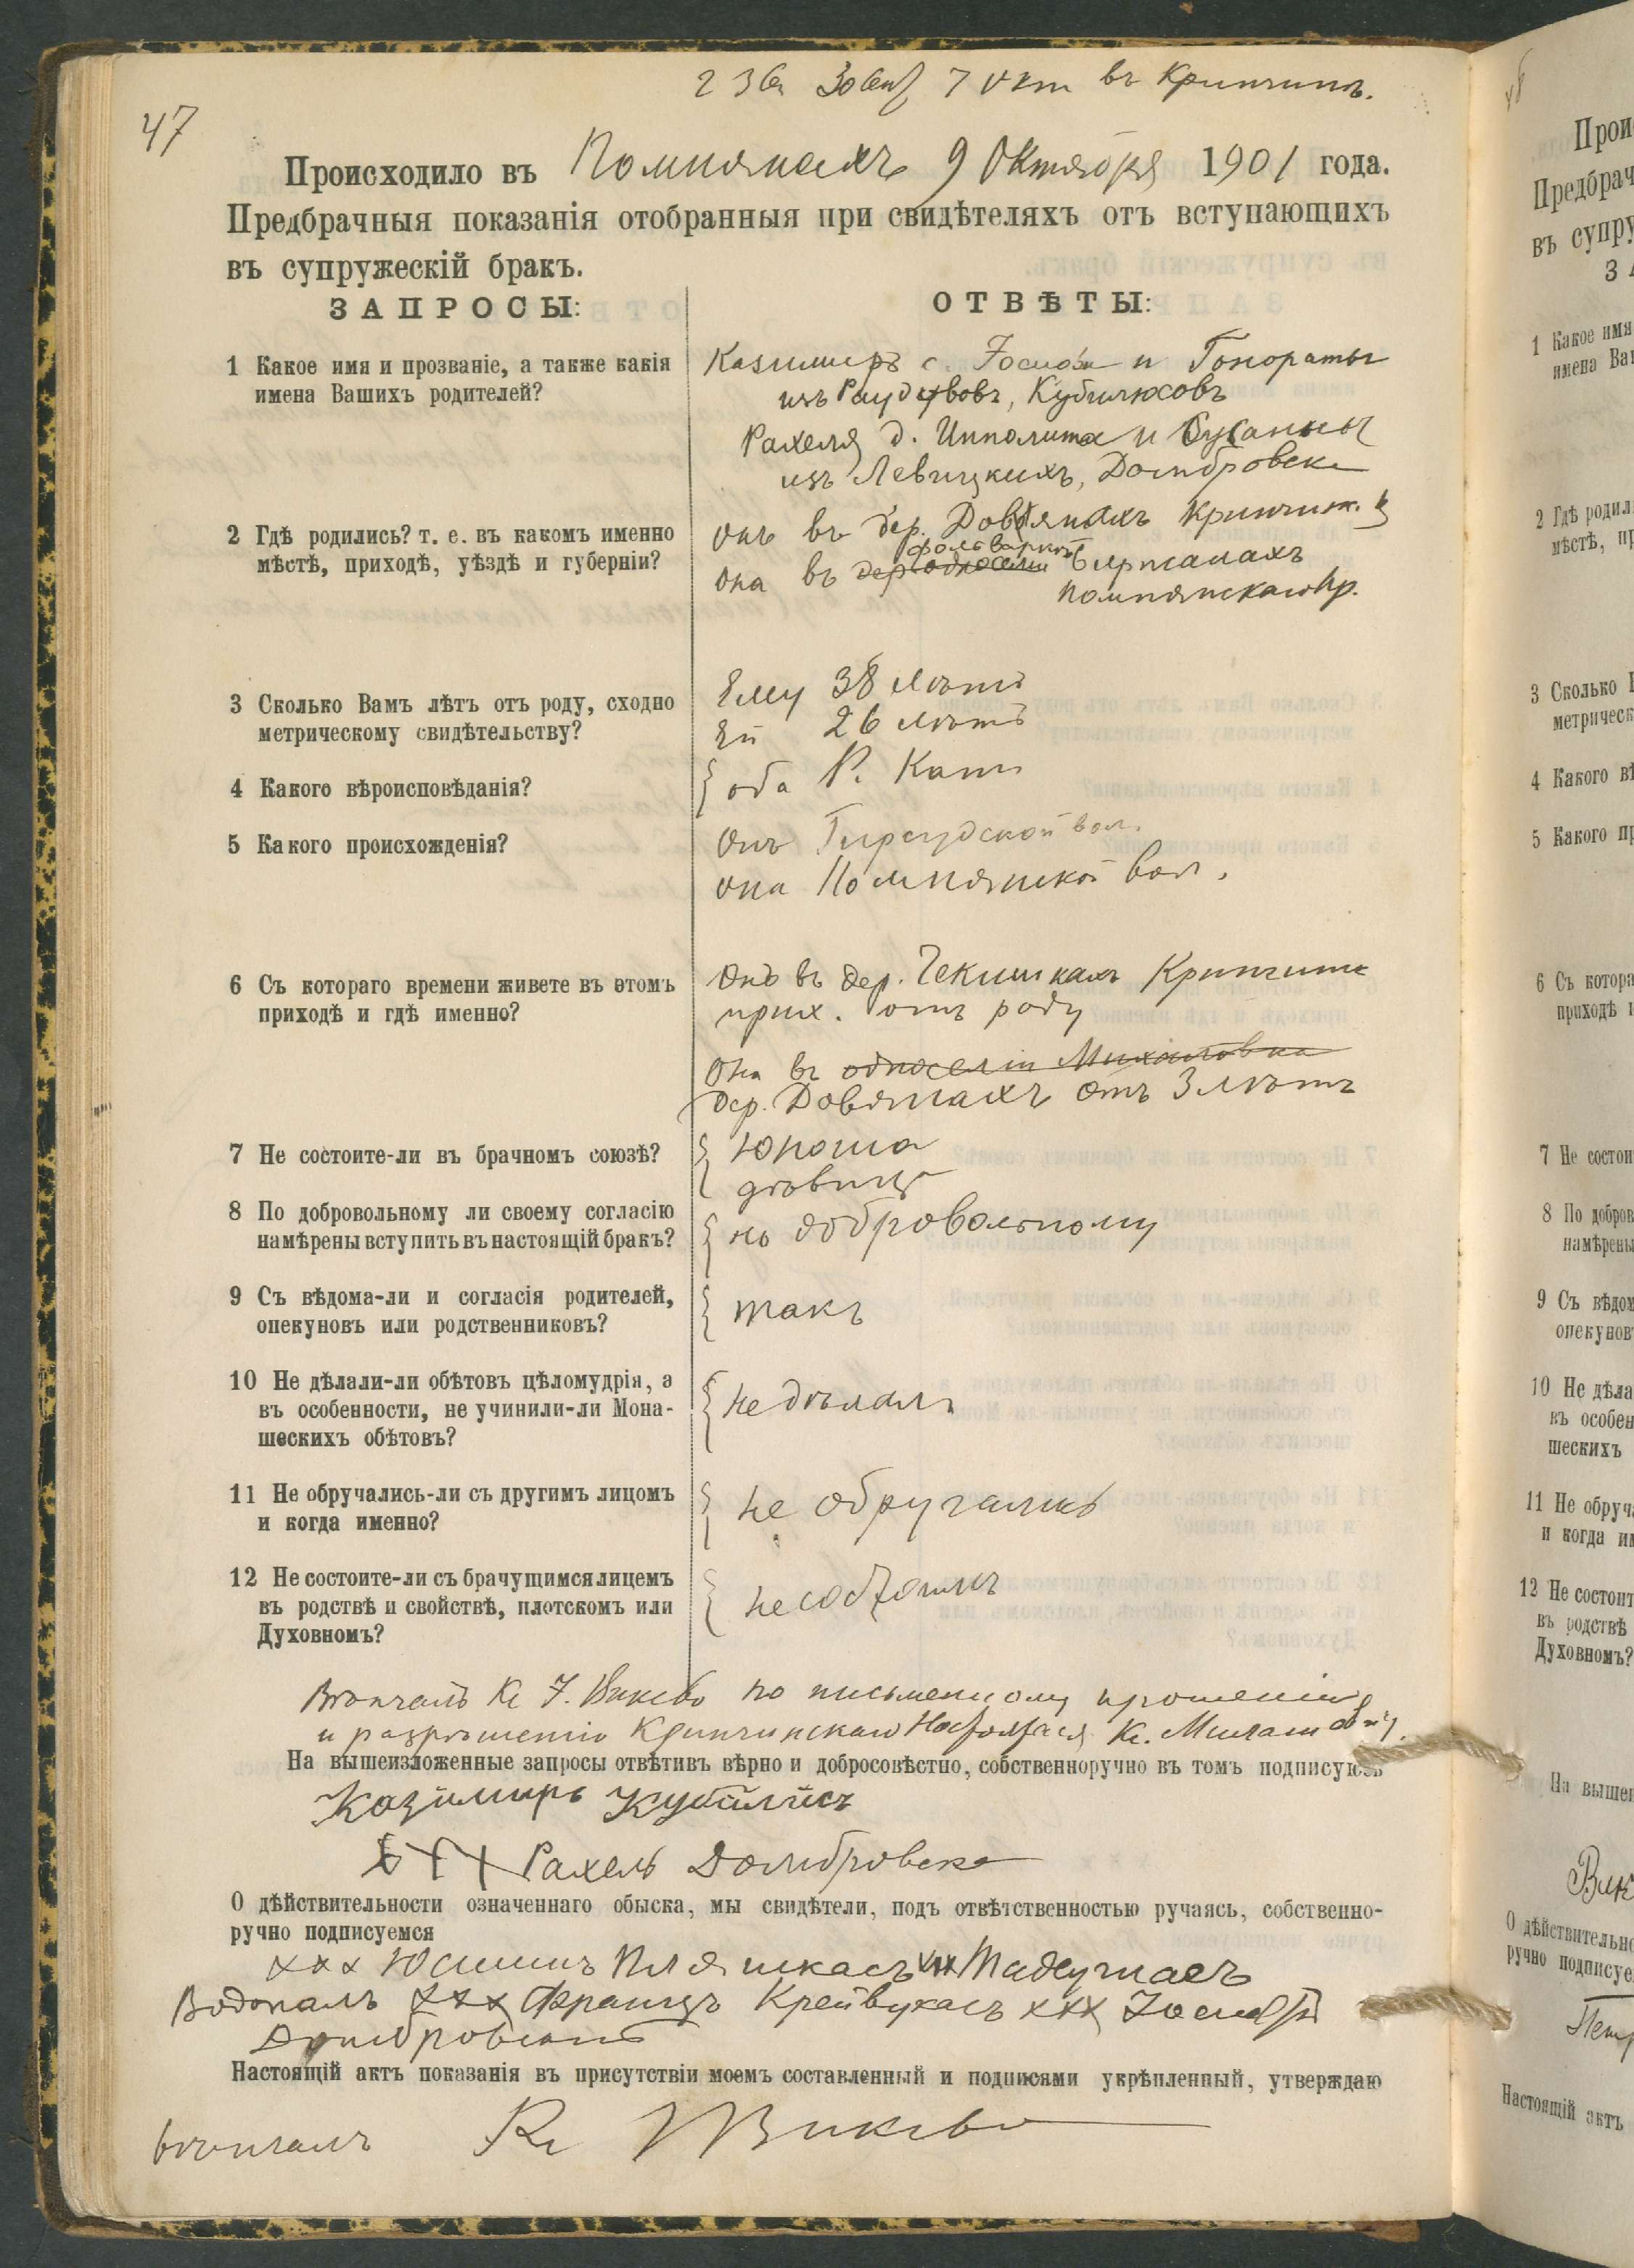 23 Сен 30 Сент 7 Окт въ Кринчинѣ.
47
Происходило въ Помпянахъ 9 Октября 1901 года.
Предбрачныя показанія отобранныя при свидѣтеляхъ отъ вступающихъ
въ супружескій бракъ.
ЗАПРОСЫ:
ОТВѢТЫ:
1 Какое имя и прозваніе, а также какія
имена Вашихъ родителей?
Казимиръ с. Іосифа и Гонораты
изъ Кубилюсовъ
Рахеля д. Ипполита и Сусанны
изъ Левицкихъ, Домбровска
2 Гдѣ родились? т. е. въ какомъ именно
мѣстѣ, приходѣ, уѣздѣ и губерніи?
Онъ въ дер. Довянахъ Кринчин.
фольваркѣ
Она въ дер односеліи
Помпянскаго пр.
3 Сколько Вамъ лѣтъ отъ роду, сходно
метрическому свидѣтельству?
Ему 38 лѣтъ
Ей 26 лѣтъ
4 Какого вѣроисповѣданія?
оба Р. Кат
5 Какого происхожденія?
Онъ Гирсудской вол.
Она Помпянской вол.
6 Съ котораго времени живете въ этомъ
приходѣ и гдѣ именно?
Онъ въ дер. Чекишкахъ Кринчин
прих. отъ роду
Она въ односеліи
дер. Довянахъ отъ 3 лѣтъ
7 Не состоите-ли въ брачномъ союзѣ?
Юноша
дѣвица
8 По добровольному ли своему согласію
намѣрены вступить въ настоящій бракъ?
по добровольному
9 Съ вѣдома-ли и согласія родителей,
опекуновъ или родственниковъ?
такъ
10 Не дѣлали-ли обѣтовъ цѣломудрія, а
въ особенности, не учинили-ли Мона-
шескихъ обѣтовъ?
не дѣлали
11 Не обручались-ли съ другимъ лицомъ
и когда именно?
не обручались
12 Не состоите-ли съ брачущимся лицемъ
въ родствѣ и свойствѣ, плотскомъ или
Духовномъ?
не состоимъ
Вѣнчалъ Кс по письменному прошенію
и разрѣшенію Кринчинскаго Настоятеля Кс.
На вышеизложенные запросы отвѣтивъ вѣрно и добросовѣстно, собственноручно въ томъ подписуюсь
Казимиръ Кубилисъ
+++ Рахель Домбровска
О дѣйствительности означеннаго обыска, мы свидѣтели, подъ отвѣтственностью ручаясь, собственно-
ручно подписуемся
xxx xxx Тадеушасъ
Водопалъ xxx Францъ Крейвукасъ xxx Іосифъ
Домбровскій
Настоящій актъ показанія въ присутствіи моемъ составленный и подписями укрѣпленный, утверждаю
вѣнчалъ Кс